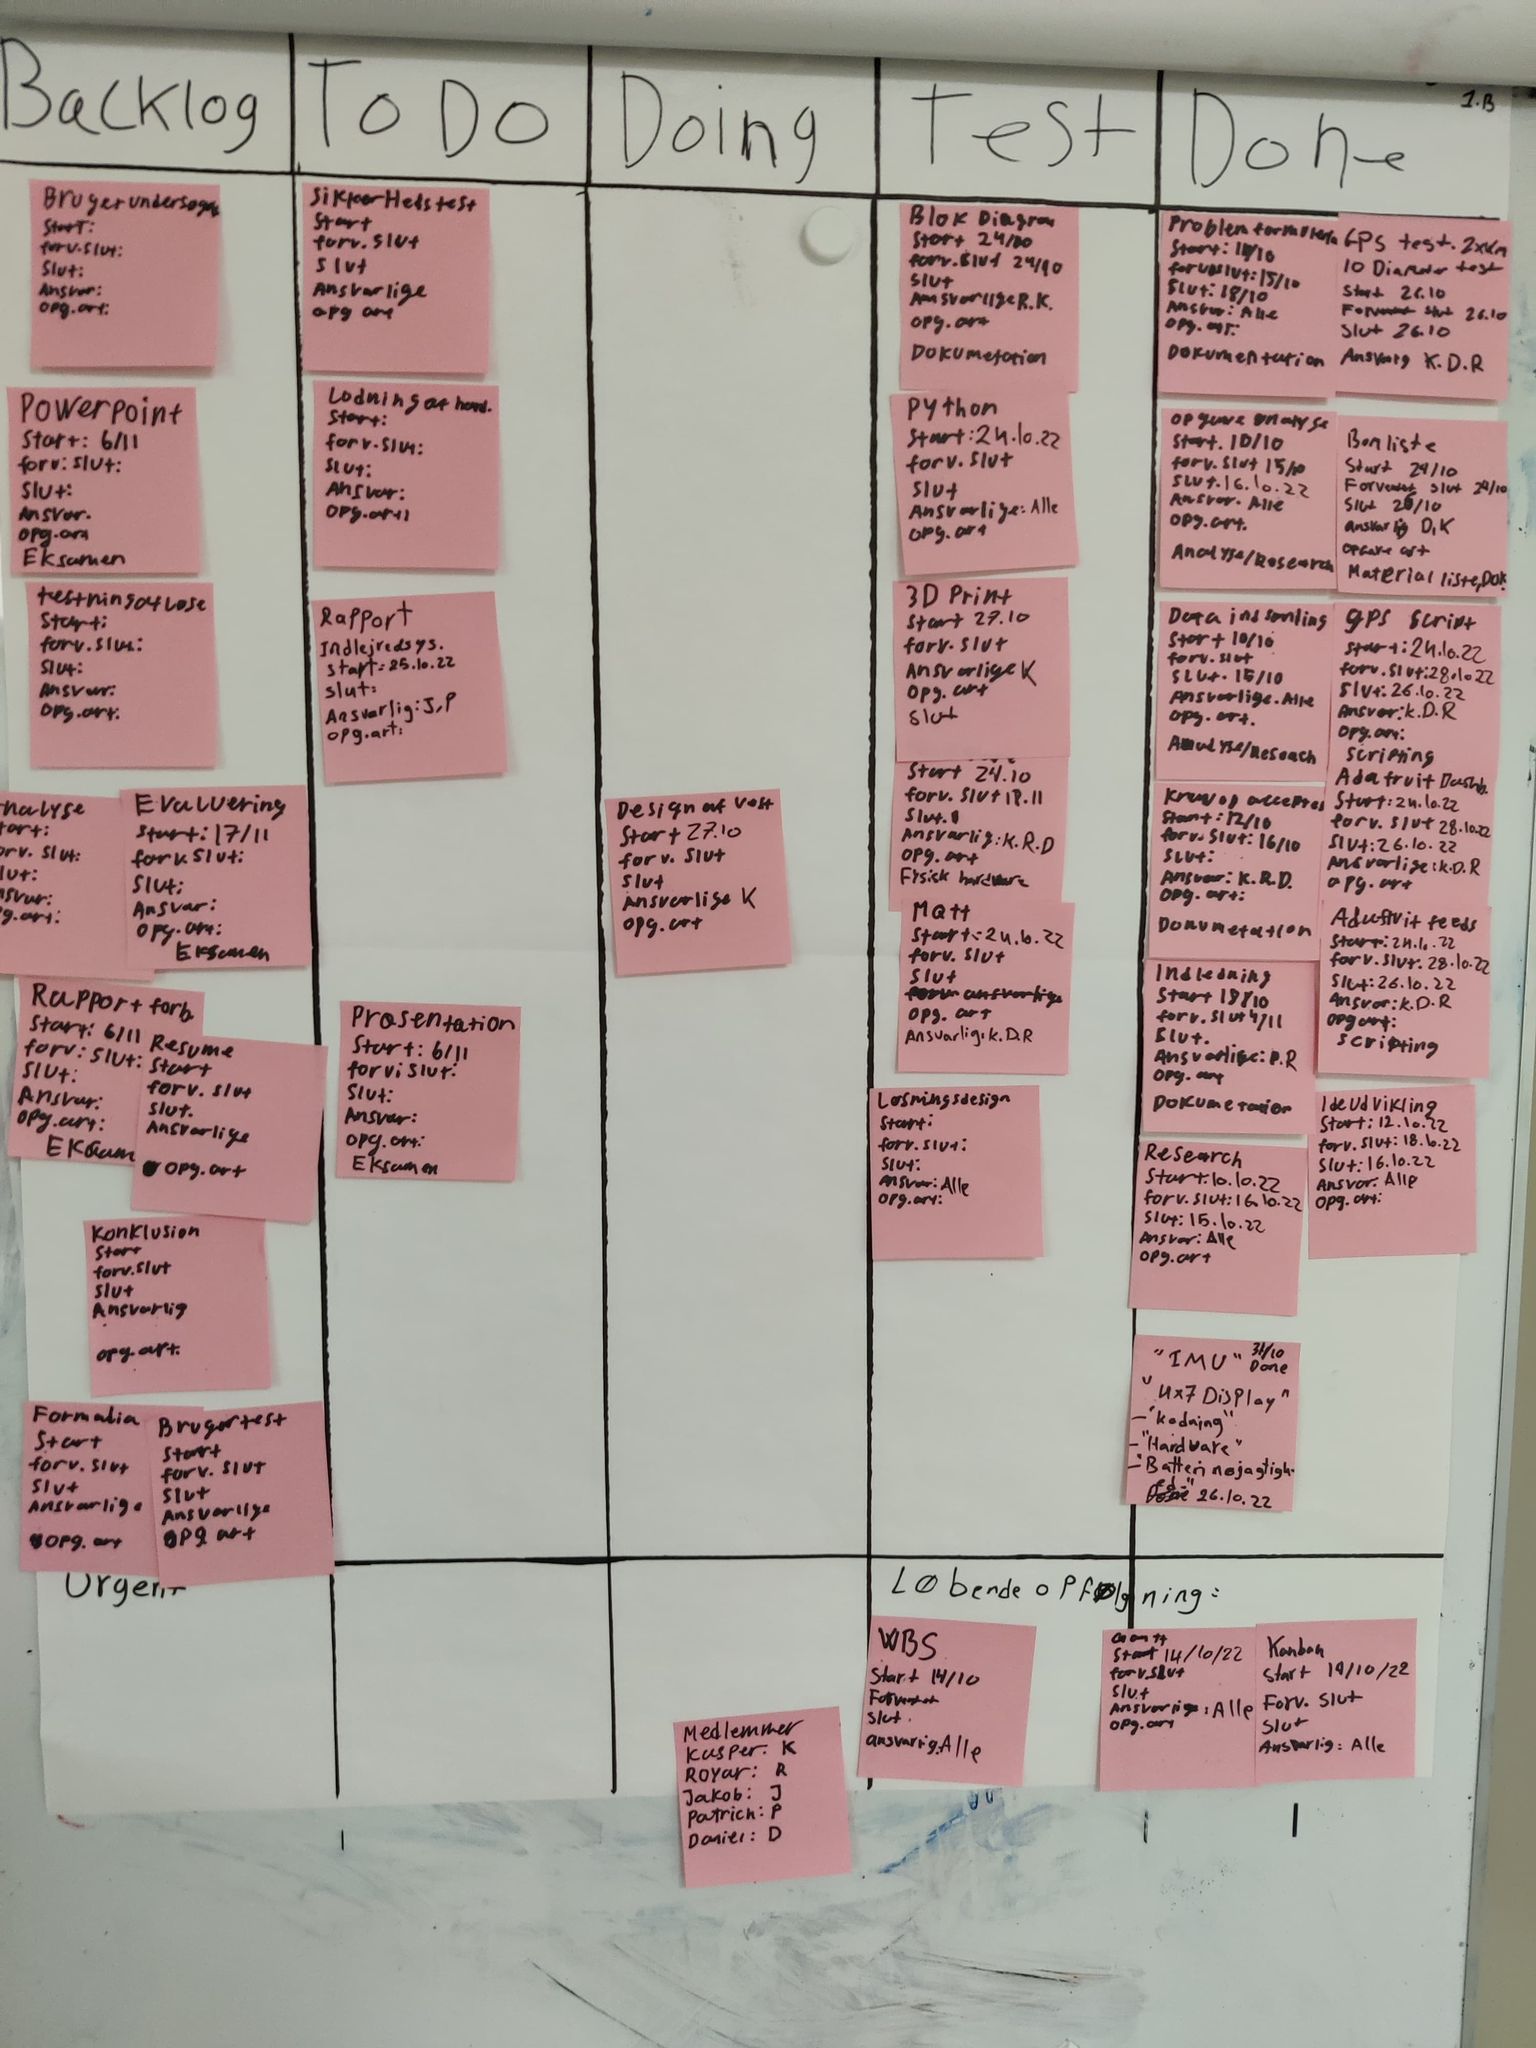 Backlog
To Do
Doing
Test
Done
1.B
Brugerundersøge
Start:
forv.slut:
Slut:
Ansvar:
opg.art:
Powerpoint
Start: 6/11
forv: slut:
Slut:
Ansvar.
opg.art
Eksamen
Start:
forv.slut:
slut:
Ansvar:
opg.art:
nalyse
tart:
orv. slut:
lut:
nsvar:
pg.art:
Evaluering
Start: 17/11
forv. slut:
Slut:
Ansvar:
opg.art:
Eksamen
Rapport forb
Start: 6/11
forv: slut:
Slut:
Ansvar:
opg.art:
Eksamen
Resume
Start
forv. slut
slut.
Ansvarlige
opg.art
Konklusion
Start
forv.slut
slut
Ansvarlig
opg.art.
Formalia
Start
forv. slut
slut
Ansvarlige
opg. art
Brugertest
Start
forv. slut
slut
Ansvarlige
opg art
Urgent
SikkerHedstest
Start
forv. slut
slut
Ansvarlige
opg art
Lodning af hard.
Start:
forv.slut:
slut:
Ansvar:
opg.art
Rapport
Indlejredsys.
start: 25.10.22
slut:
Ansvarlig: J,P
opg.art:
Prasentation
Start: 6/11
forv slut:
Slut:
Ansvar:
opg.art:
Eksamen
Design af vest
Start 27.10
forv. slut
slut
Ansvarlige K
opg.art
Blok Diagram
Start 24/10
forv.slut 24/10
slut
Ansvarlige R.K.
opg.art
Dokumetation
Python
Start: 24.10.22
forv. slut
slut
Ansvarlige: Alle
opg.art
3D Print
Start 27.10
forv. slut
Ansvarlige K
opg. art
slut
Start 24.10
forv. slut 18.11
slut.
Ansvarlig: K.R.D
opg. art
Fysisk hardware
Mqtt
Start: 24.10.22
forv. slut
Slut
ansvarlige
opg. art
Ansvarlig: K.D.R
Løsningsdesign
Start:
forv.slut:
slut:
Ansvar: Alle
opg.art:
Problemformulerin
Start: 10/10
forv.slut: 15/10
slut: 18/10
Ansvar: Alle
opg.art:
Dokumentation
GPS test. 2xkm
10 Diameter test
Start 26.10
Forventet slut 26.10
Slut 26.10
Ansvarlig K.D.R
opgave analyse
Start. 10/10
forv.slut 15/10
slut.16.10.22
Ansvar. Alle
opg.art.
Analyse/Research
Bomliste
Start 24/10
Forventet slut 24/10
Slut 26/10
ansvarlig D,K
opgave art
Material liste, Dok.
Data indsamling
Start 10/10
forv. slut
slut. 15/10
Ansvarlige. Alle
opg. art.
Analyse/Reseach
GPS Script
Start: 24.10.22
forv. slut: 28.10.22
slut: 26.10.22
Ansvar: K.D.R
opg.art:
scripting
Krav og accepttes
Start: 12/10
forv. slut: 16/10
slut:
Ansvar: K.R.D.
opg.art:
Dokumetation
Adafruit Dashb.
Start: 24.10.22
forv. slut 28.10.22
slut: 26.10.22
Ansvarlige: K.D.R
opg. art
Indledning
Start 18/10
forv. slut 4/11
slut.
Ansvarlige: P.R
opg. art
Dokumetation
Adafruit feeds
Start: 24.10.22
forv. slut. 28.10.22
slut: 26.10.22
Ansvar: K.D.R
opg art:
scripting
Research
Start: 10.10.22
forv. slut: 16.10.22
slut: 15.10.22
Ansvar: Alle
opg.art
Ideudvikling
Start: 12.10.22
forv. slut: 18.10.22
slut: 16.10.22
Ansvar: Alle
opg.art:
"IMU" 31/10 Done
"4x7 Display"
- "kodning"
- "Hardware"
- "Batteri nøjagtigh-
ed-"
26.10.22
Løbende opfølgning:
WBS
Start 14/10
Forventet
slut.
ansvarlig. Alle
Gantt
Start 14/10/22
forv.slut
slut
Ansvarlige: Alle
opg.art
Kanban
Start 14/10/22
Forv. slut
slut
Ansvarlig: Alle
Medlemmer
Kasper: K
Royar: R
Jakob: J
Patrich: P
Daniel: D